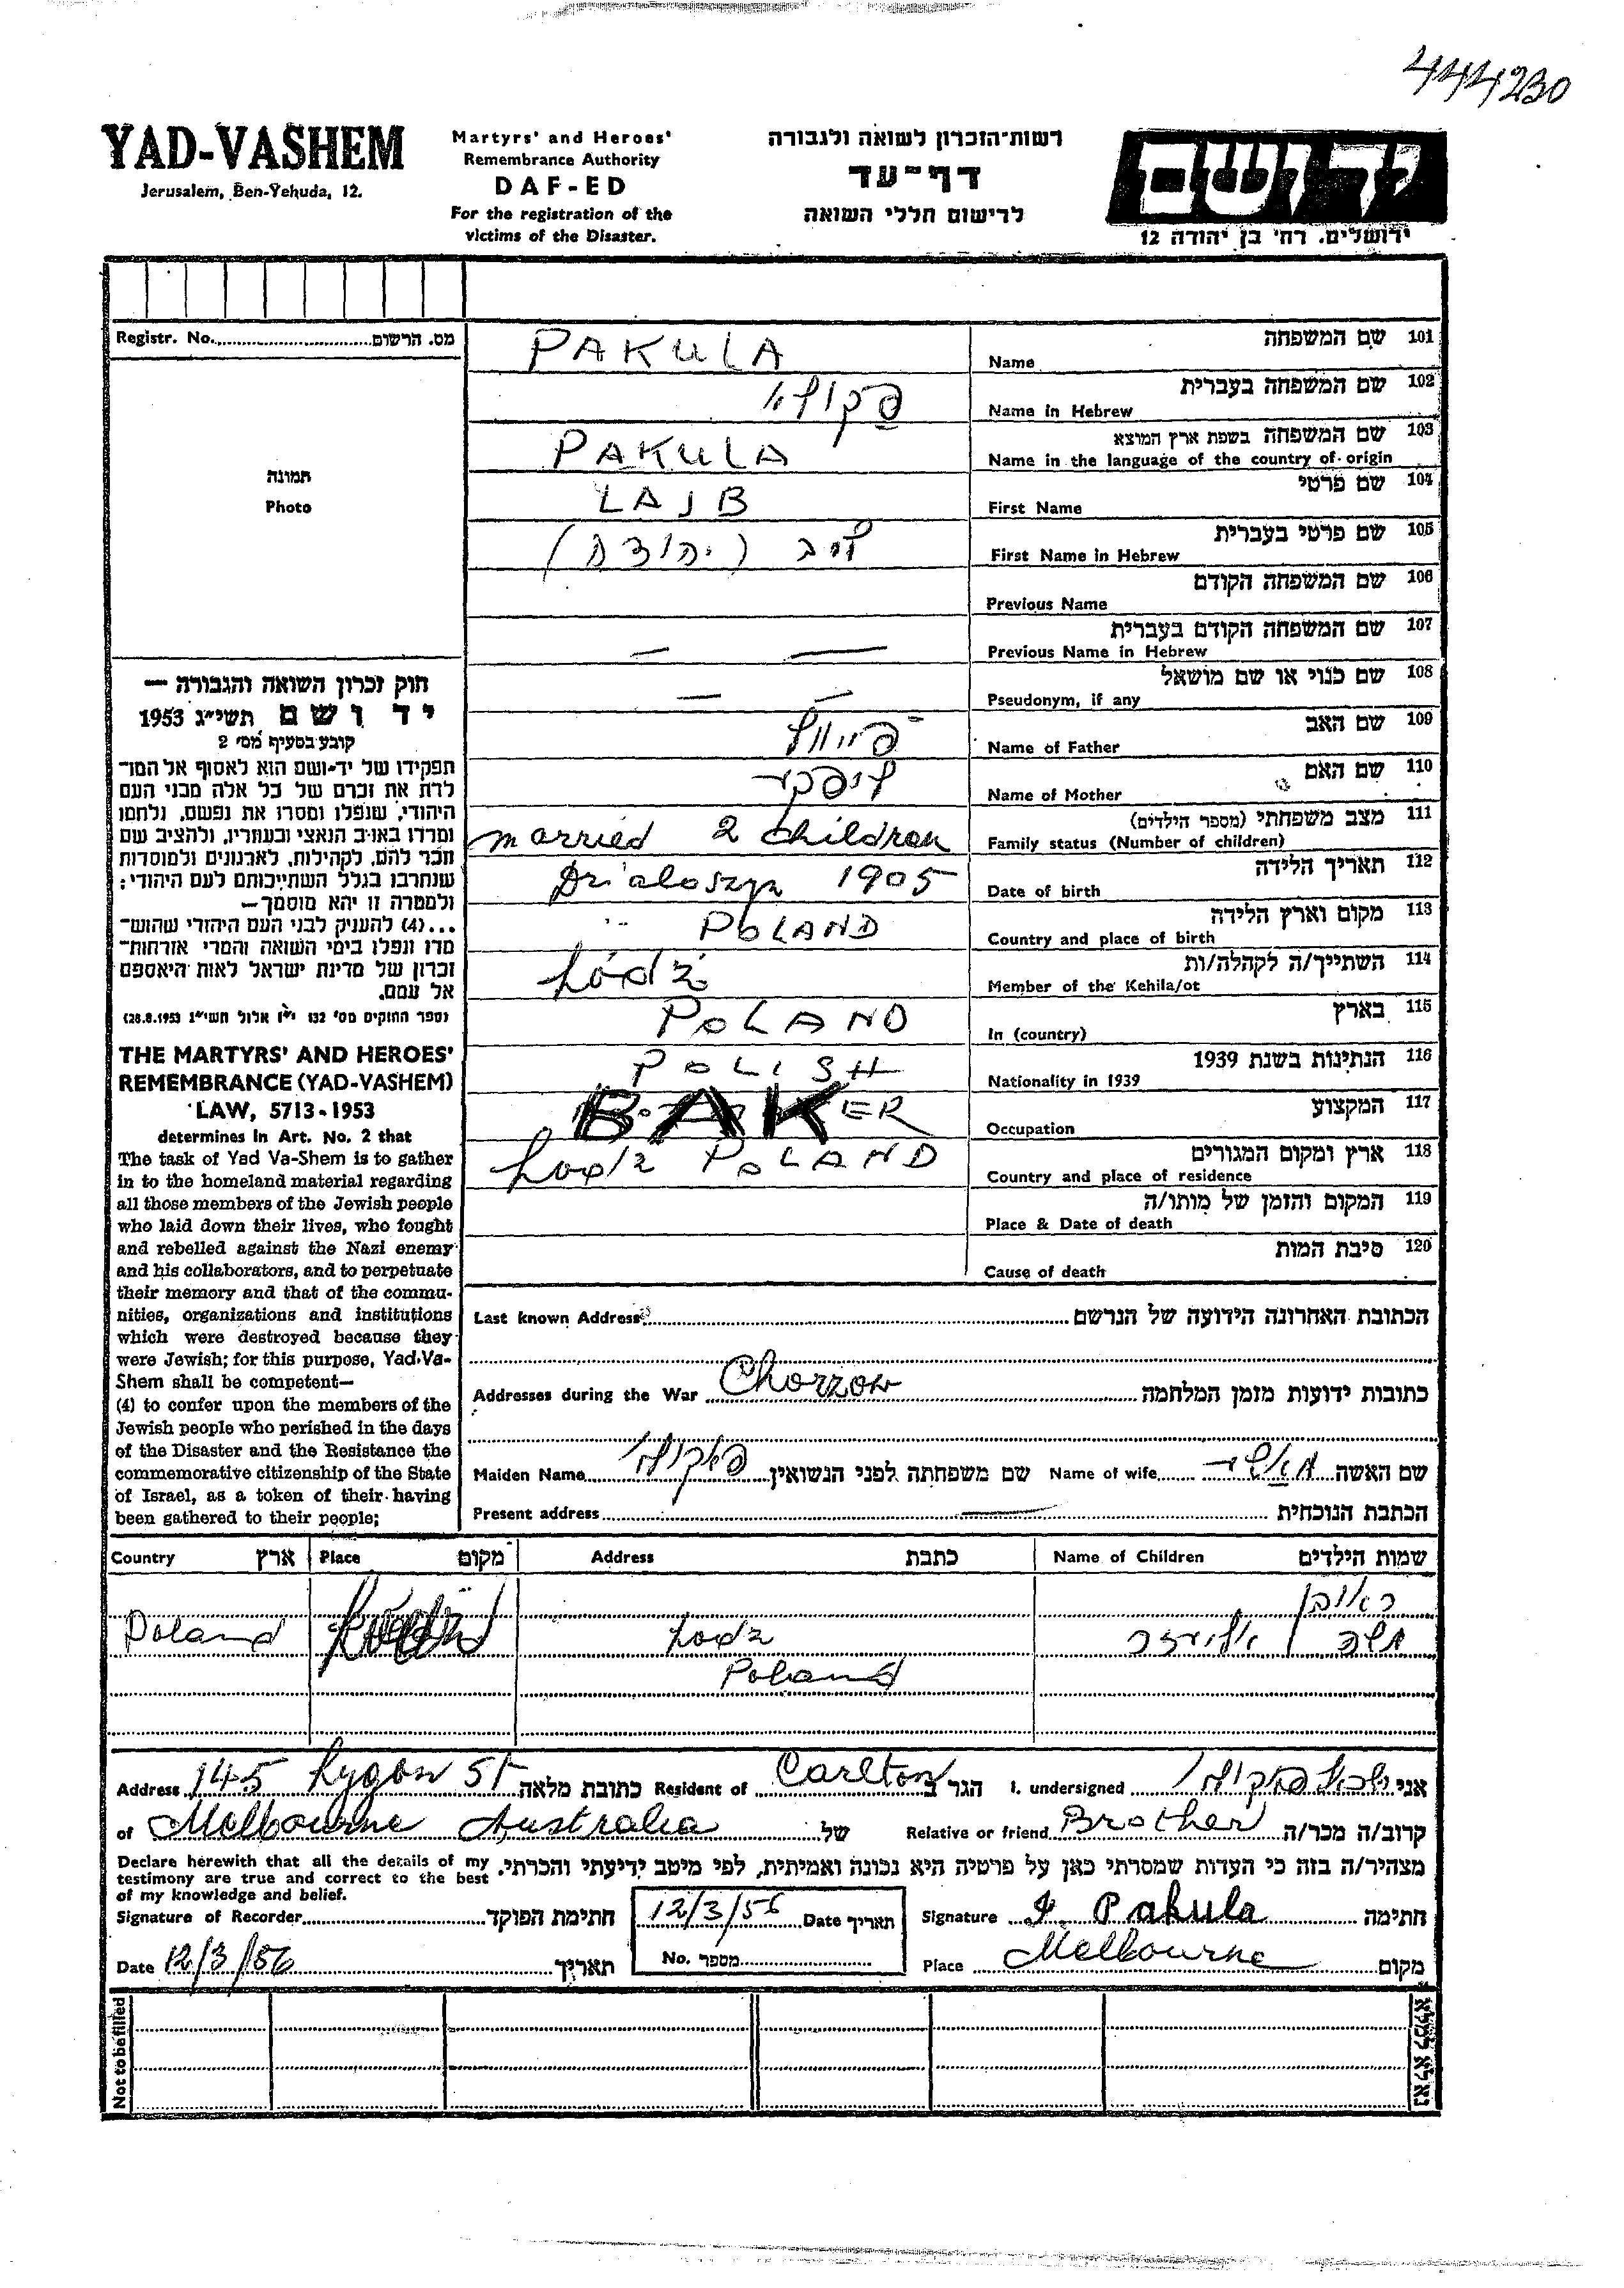 444230
YAD-VASHEM
Jerusalem, Ben-Yehuda, 12.
Martyrs' and Heroes'
Remembrance Authority
DAF-ED
For the registration of the
victims of the Disaster.
רשות-הזכרון לשואה ולגבורה
דף-עד
לרישום חללי השואה
יד ושם
ירושלים. רח' בן יהודה 12
Registr. No. מס. הרשום
תמונה
Photo
PAKULA Name שם המשפחה 101
פקולא Name in Hebrew שם המשפחה בעברית 102
PAKULA Name in the language of the country of origin שם המשפחה בשפת ארץ המוצא 103
LAJB First Name שם פרטי 104
ליב (יהודה) First Name in Hebrew שם פרטי בעברית 105
Previous Name שם המשפחה הקודם 106
— — Previous Name in Hebrew שם המשפחה הקודם בעברית 107
— — Pseudonym, if any שם כנוי או שם מושאל 108
פייוול Name of Father שם האב 109
Name of Mother שם האם 110
married 2 children Family status (Number of children) מצב משפחתי (מספר הילדים) 111
Dzialoszyn 1905 Date of birth תאריך הלידה 112
POLAND Country and place of birth מקום וארץ הלידה 113
Łódź Member of the Kehila/ot השתייך/ה לקהלה/ות 114
POLAND In (country) בארץ 115
POLISH Nationality in 1939 הנתינות בשנת 1939 116
BAKER Occupation המקצוע 117
Łodz POLAND Country and place of residence ארץ ומקום המגורים 118
Place & Date of death המקום והזמן של מותו/ה 119
Cause of death סיבת המות 120
חוק זכרון השואה והגבורה —
יד ושם תשי"ג 1953
קובע בסעיף מס' 2
תפקידו של יד-ושם הוא לאסוף אל המו־
לדת את זכרם של כל אלה מבני העם
היהודי, שנפלו ומסרו את נפשם, נלחמו
ומרדו באויב הנאצי ובעוזריו, ולהציב שם
וזכר להם, לקהילות, לארגונים ולמוסדות
שנחרבו בגלל השתייכותם לעם היהודי;
ולמטרה זו יהא מוסמך—
...(4) להעניק לבני העם היהודי שהוש־
מדו ונפלו בימי השואה והמרי אזרחות־
זכרון של מדינת ישראל לאות היאספם
אל עמם.
(ספר החוקים מס' 132 י"ז אלול תשי"ג 28.8.1953)
THE MARTYRS' AND HEROES'
REMEMBRANCE (YAD-VASHEM)
LAW, 5713-1953
determines in Art. No. 2 that
The task of Yad Va-Shem is to gather
in to the homeland material regarding
all those members of the Jewish people
who laid down their lives, who fought
and rebelled against the Nazi enemy
and his collaborators, and to perpetuate
their memory and that of the commu-
nities, organizations and institutions
which were destroyed because they
were Jewish; for this purpose, Yad-Va-
Shem shall be competent—
(4) to confer upon the members of the
Jewish people who perished in the days
of the Disaster and the Resistance the
commemorative citizenship of the State
of Israel, as a token of their having
been gathered to their people;
Last known Address הכתובת האחרונה הידועה של הנרשם
Addresses during the War Chorzow כתובות ידועות מזמן המלחמה
Maiden Name פאקולא שם משפחתה לפני הנשואין Name of wife שם האשה
Present address — הכתבת הנוכחית
Country ארץ Place מקום Address כתבת Name of Children שמות הילדים
ראובן
Poland Lodz משה
Poland
Address 145 Lygon St כתובת מלאה Resident of Carlton הגר ב I, undersigned פקולא אני
of Melbourne Australia של Relative or friend Brother קרוב/ה מכר/ה
Declare herewith that all the details of my
testimony are true and correct to the best
of my knowledge and belief.
מצהיר/ה בזה כי העדות שמסרתי כאן על פרטיה היא נכונה ואמיתית, לפי מיטב ידיעתי והכרתי.
Signature of Recorder חתימת הפוקד 12/3/56 Date תאריך Signature I. Pakula חתימה
Date 12/3/56 תאריך No. מספר Place Melbourne מקום
Not to be filled נא לא למלא